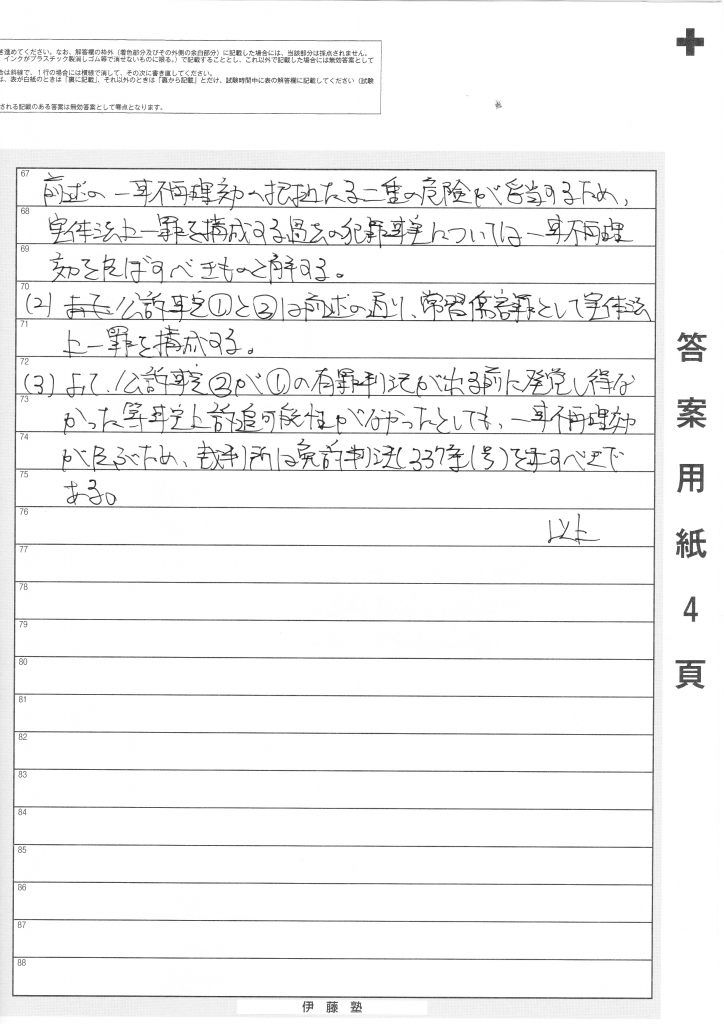 き進めてください。なお、解答欄の枠外（着色部分及びその外側の余白部分）に記載した場合には、当該部分は採点されません。
、インクがプラスチック製消しゴム等で消せないものに限る。）で記載することとし、これ以外で記載した場合には無効答案として
合は斜線で、１行の場合には横線で消して、その次に書き直してください。
は、表が白紙のときは「裏に記載」、それ以外のときは「裏から記載」とだけ、試験時間中に表の解答欄に記載してください（試験
される記載のある答案は無効答案として零点となります。
67 前述の一事不再理効の根拠たる二重の危険が妥当するため、
68 実体法上一罪を構成する過去の犯罪事実については一事不再理
69 効を及ぼすべきものと解する。
70 (2) 公訴事実①と②は前述の通り、常習傷害罪として実体法
71 上一罪を構成する。
72 (3) よって、公訴事実②が①の有罪判決が出る前に発覚し得な
73 かった等事実上訴追可能性がなかったとしても、一事不再理効
74 が及ぶため、裁判所は免訴判決(337条1号)を下すべきで
75 ある。
76 以上
77
78
79
80
81
82
83
84
85
86
87
88
伊藤塾
答案用紙4頁